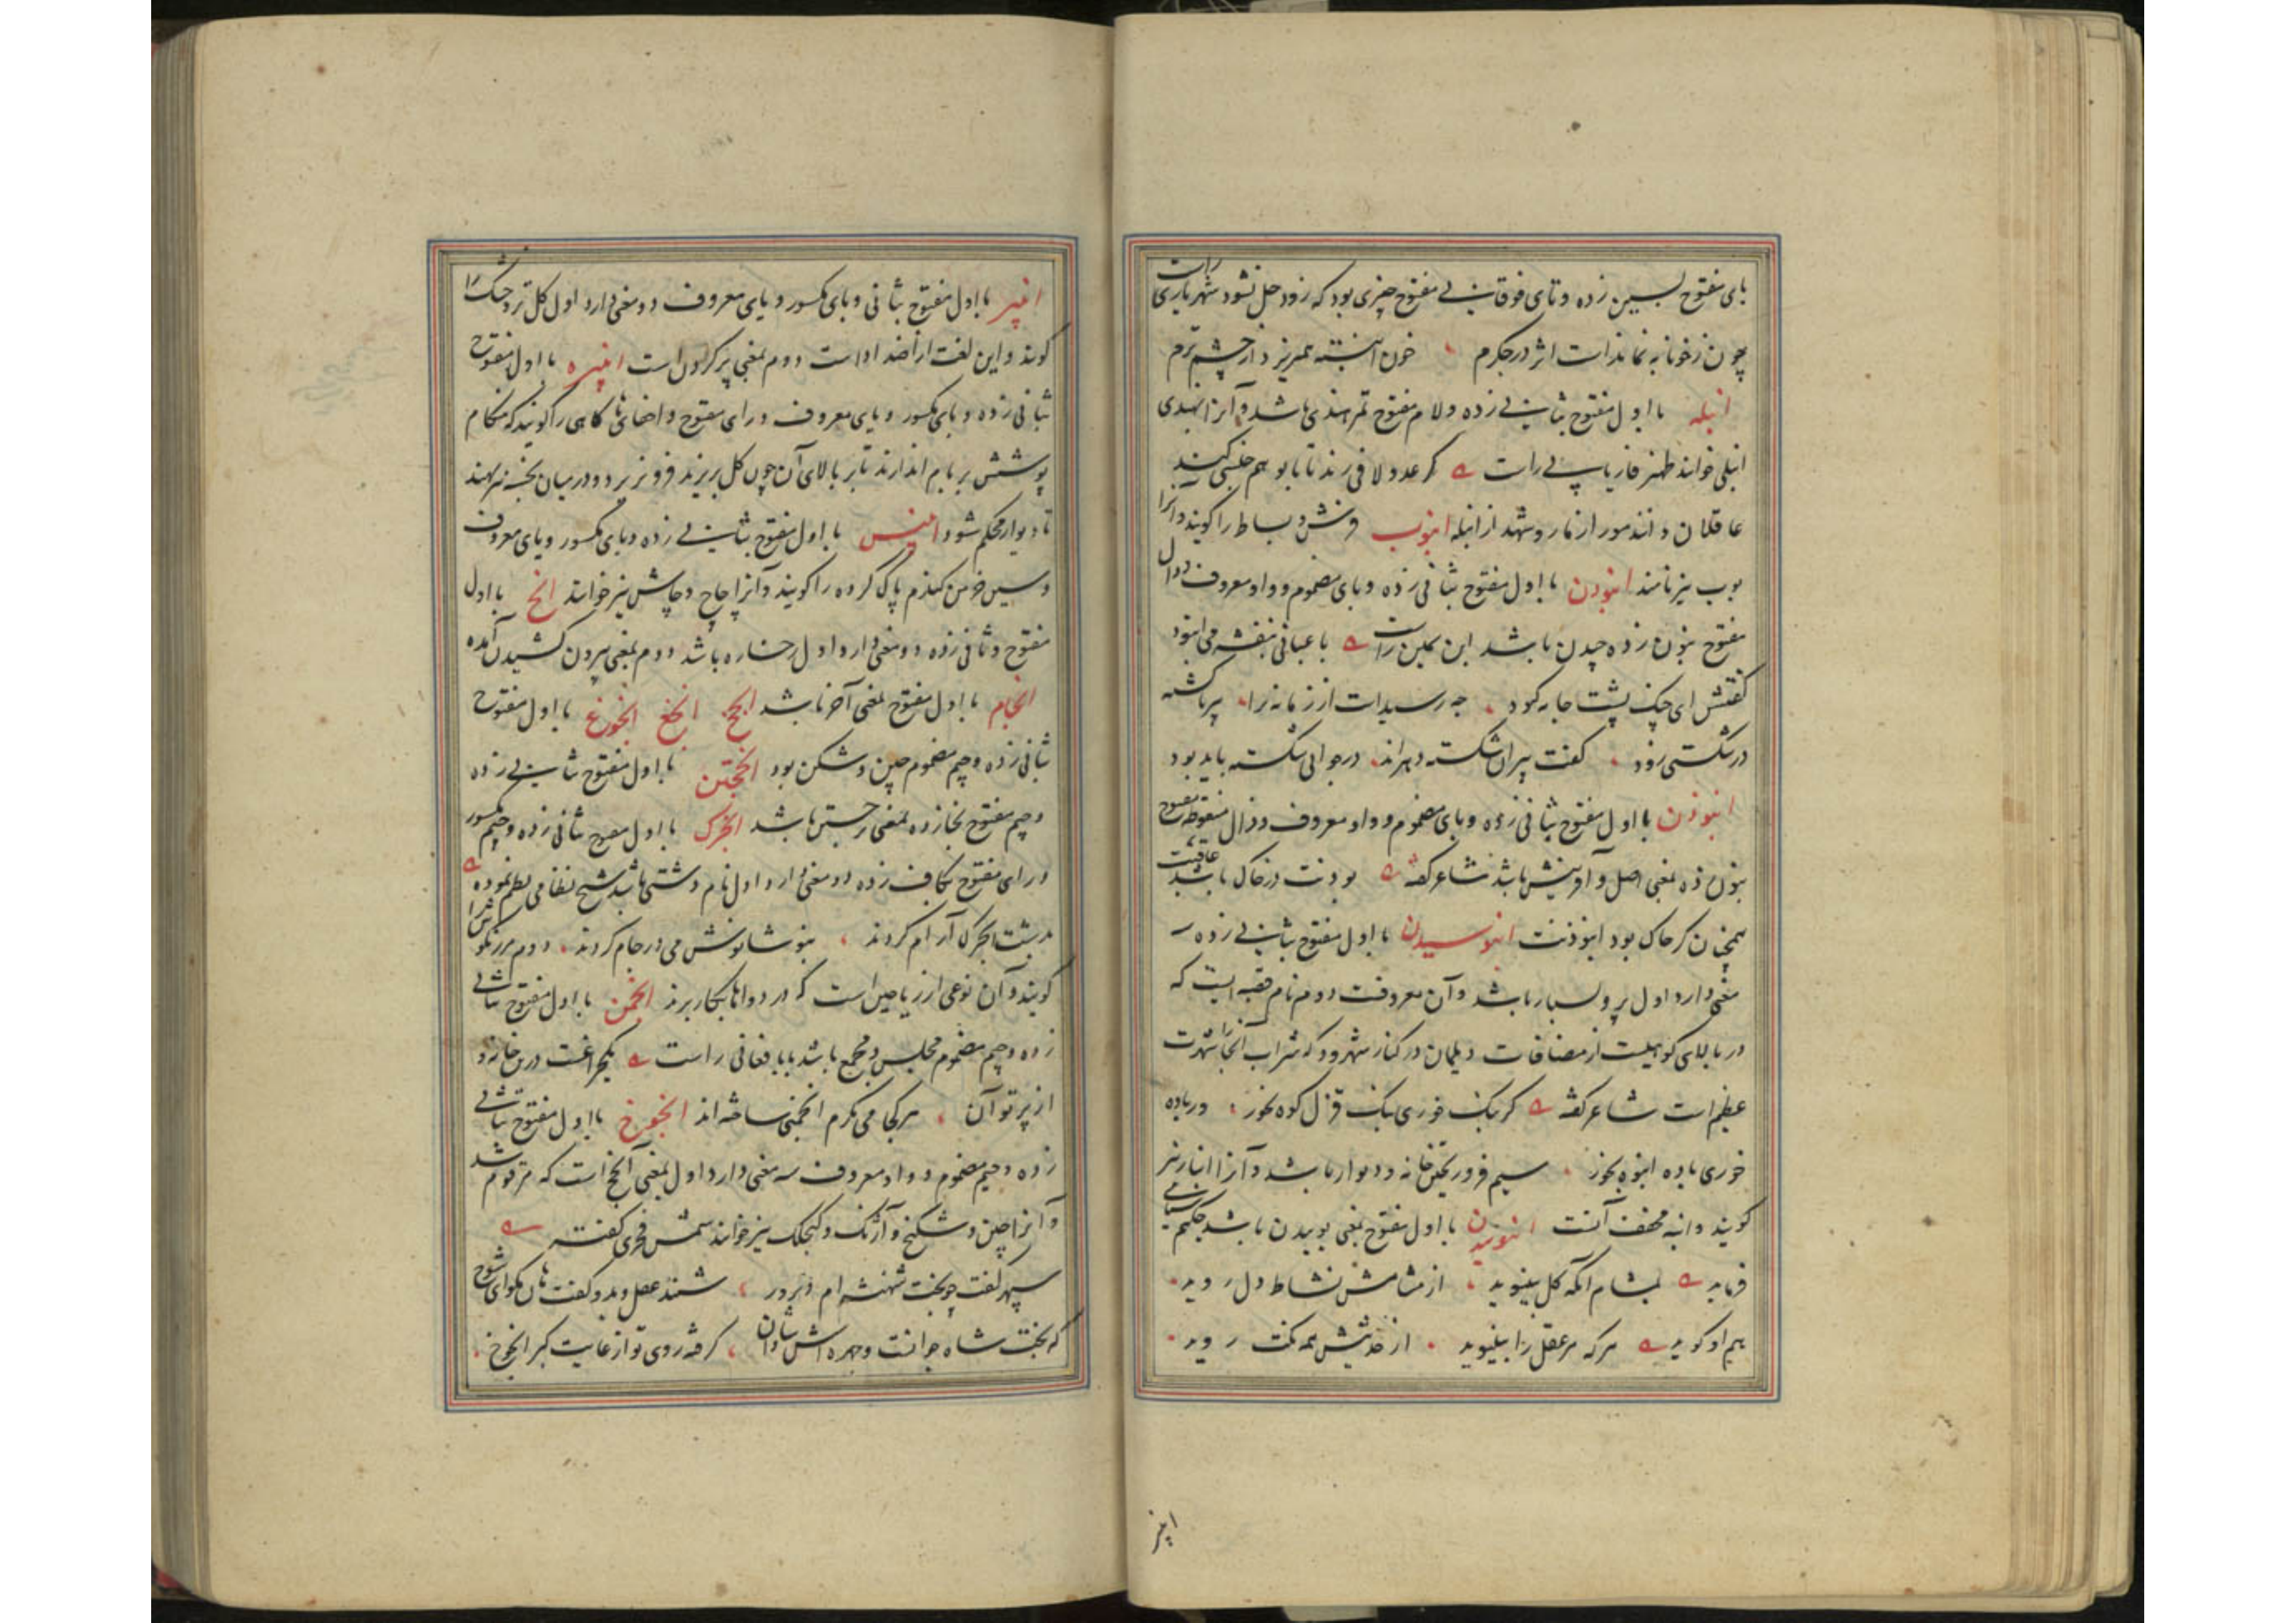 بای مفتوح بسین زده و تای فوقانی مفتوح چیزی بود که زود حل نشود شهریاری راست
چون ز خونابه نماند است اثر در جکرم خون انبسته همریزد از چشم ترم
انبله با اول مفتوح بثانی زده و لام مفتوح تمر هندی باشد و آنرا بهندی
انبلی خوانند ظهیر فاریابی راست گر عدو لافی زند تا با تو هم جنسی کند
عاقلان دانند مور از مار و شهد از انبله انبوب فرش و بساط را کویند و آنرا
بوب نیز نامند انبودن با اول مفتوح بثانی زده و بای مضموم و واو معروف و دال
مفتوح بنون زده چیدن باشد ابن یمین راست باغبانی بنفشه می انبود
کفتش ای کوژ پشت جامه کبود چه رسیدست از زمانه ترا پیر ناکشته
در شکستی زود کفت پیران شکسته دهراند در جوانی شکسته باید بود
انبوذن با اول مفتوح بثانی زده و بای مضموم و واو معروف و ذال منقوطه مفتوح
بنون زده بمعنی اصل و آفرینش باشد شاعر کفته بودنت در خاک باشد عاقبت
همچنان کز خاک بود انبوذنت انبوسیدن با اول مفتوح بثانی زده
معنی دارد اول پر و بسیار باشد و آن معروفست دوم نام قصبه ایست که
در بالای کوهیست از مضافات دیلمان در کنار شهرود که شراب آنجا شهرت
عظیم است شاعر کفته کر بنک خوری بنک قزل کوه بخور ور باده
خوری باده انبوه بخور سیم فرو ریختن خانه و دیوار باشد و آنرا انبار نیز
کویند و انبه مخفف آنست انبوییدن با اول مفتوح بمعنی بوییدن باشد حکیم سنایی
فرماید بمشام آنکه کل بینبوید از مشامش نشاط دل روید
هم او کوید هر که مر عقل را بینبوید از حدیثش همه نکت روید
انبیر
انبیر با اول مفتوح بثانی و بای مکسور و یای معروف دو معنی دارد اول کل تر و خشک را
کویند و این لغت از اضداد است دوم بمعنی پر کردن است انبیره با اول مفتوح
بثانی زده و بای مکسور و یای معروف و رای مفتوح و اخفای ها کاهی را کویند که هنکام
پوشش بر بام اندازند تا بر بالای آن چون کل بریزند فرو نریزد و در میان نهند
تا دیوار محکم شود انبیس با اول مفتوح بثانی زده و بای مکسور و یای معروف
و سین خرمن کندم پاک کرده را کویند و آنرا چاچ و چاش نیز خوانند انج با اول
مفتوح و ثانی زده دو معنی دارد اول رخساره باشد دوم بمعنی بیرون کشیدن آمده
انجام با اول مفتوح بمعنی آخر باشد انجخ انجغ انجوغ با اول مفتوح
بثانی زده و جیم مضموم چین و شکن بود انجختن با اول مفتوح بثانی زده
و جیم مفتوح بخا زده بمعنی جستن باشد انجرک با اول مفتوح بثانی زده و جیم مکسور
و رای مفتوح بکاف زده دو معنی دارد اول نام دشتی باشد شیخ نظامی نظم نموده
بدشت انجرک آرام کردند بنوشانوش می در جام کردند دوم مرزنکوش را
کویند و آن نوعی از ریاحین است که در دواها بکار برند انجمن با اول مفتوح بثانی
زده و جیم مضموم مجلس و مجمع باشد بابا فغانی راست یک چراغست درین خانه و
از پرتو آن هر کجا می نکرم انجمنی ساخته اند انجوخ با اول مفتوح بثانی
زده و جیم مضموم و واو معروف سه معنی دارد اول بمعنی انجخ است که مرقوم شد
و آنرا چین و شکنج و آژنک و کیجلک نیز خوانند شمس فخری کفته
سپهر کفت چو بخت شهنشه ام دیدور شنید عقل و بدو کفت هان مکو ای شوخ
که بخت شاه جوانست و چهره اش شادان کرفته روی تو از غایت کبر انجوخ